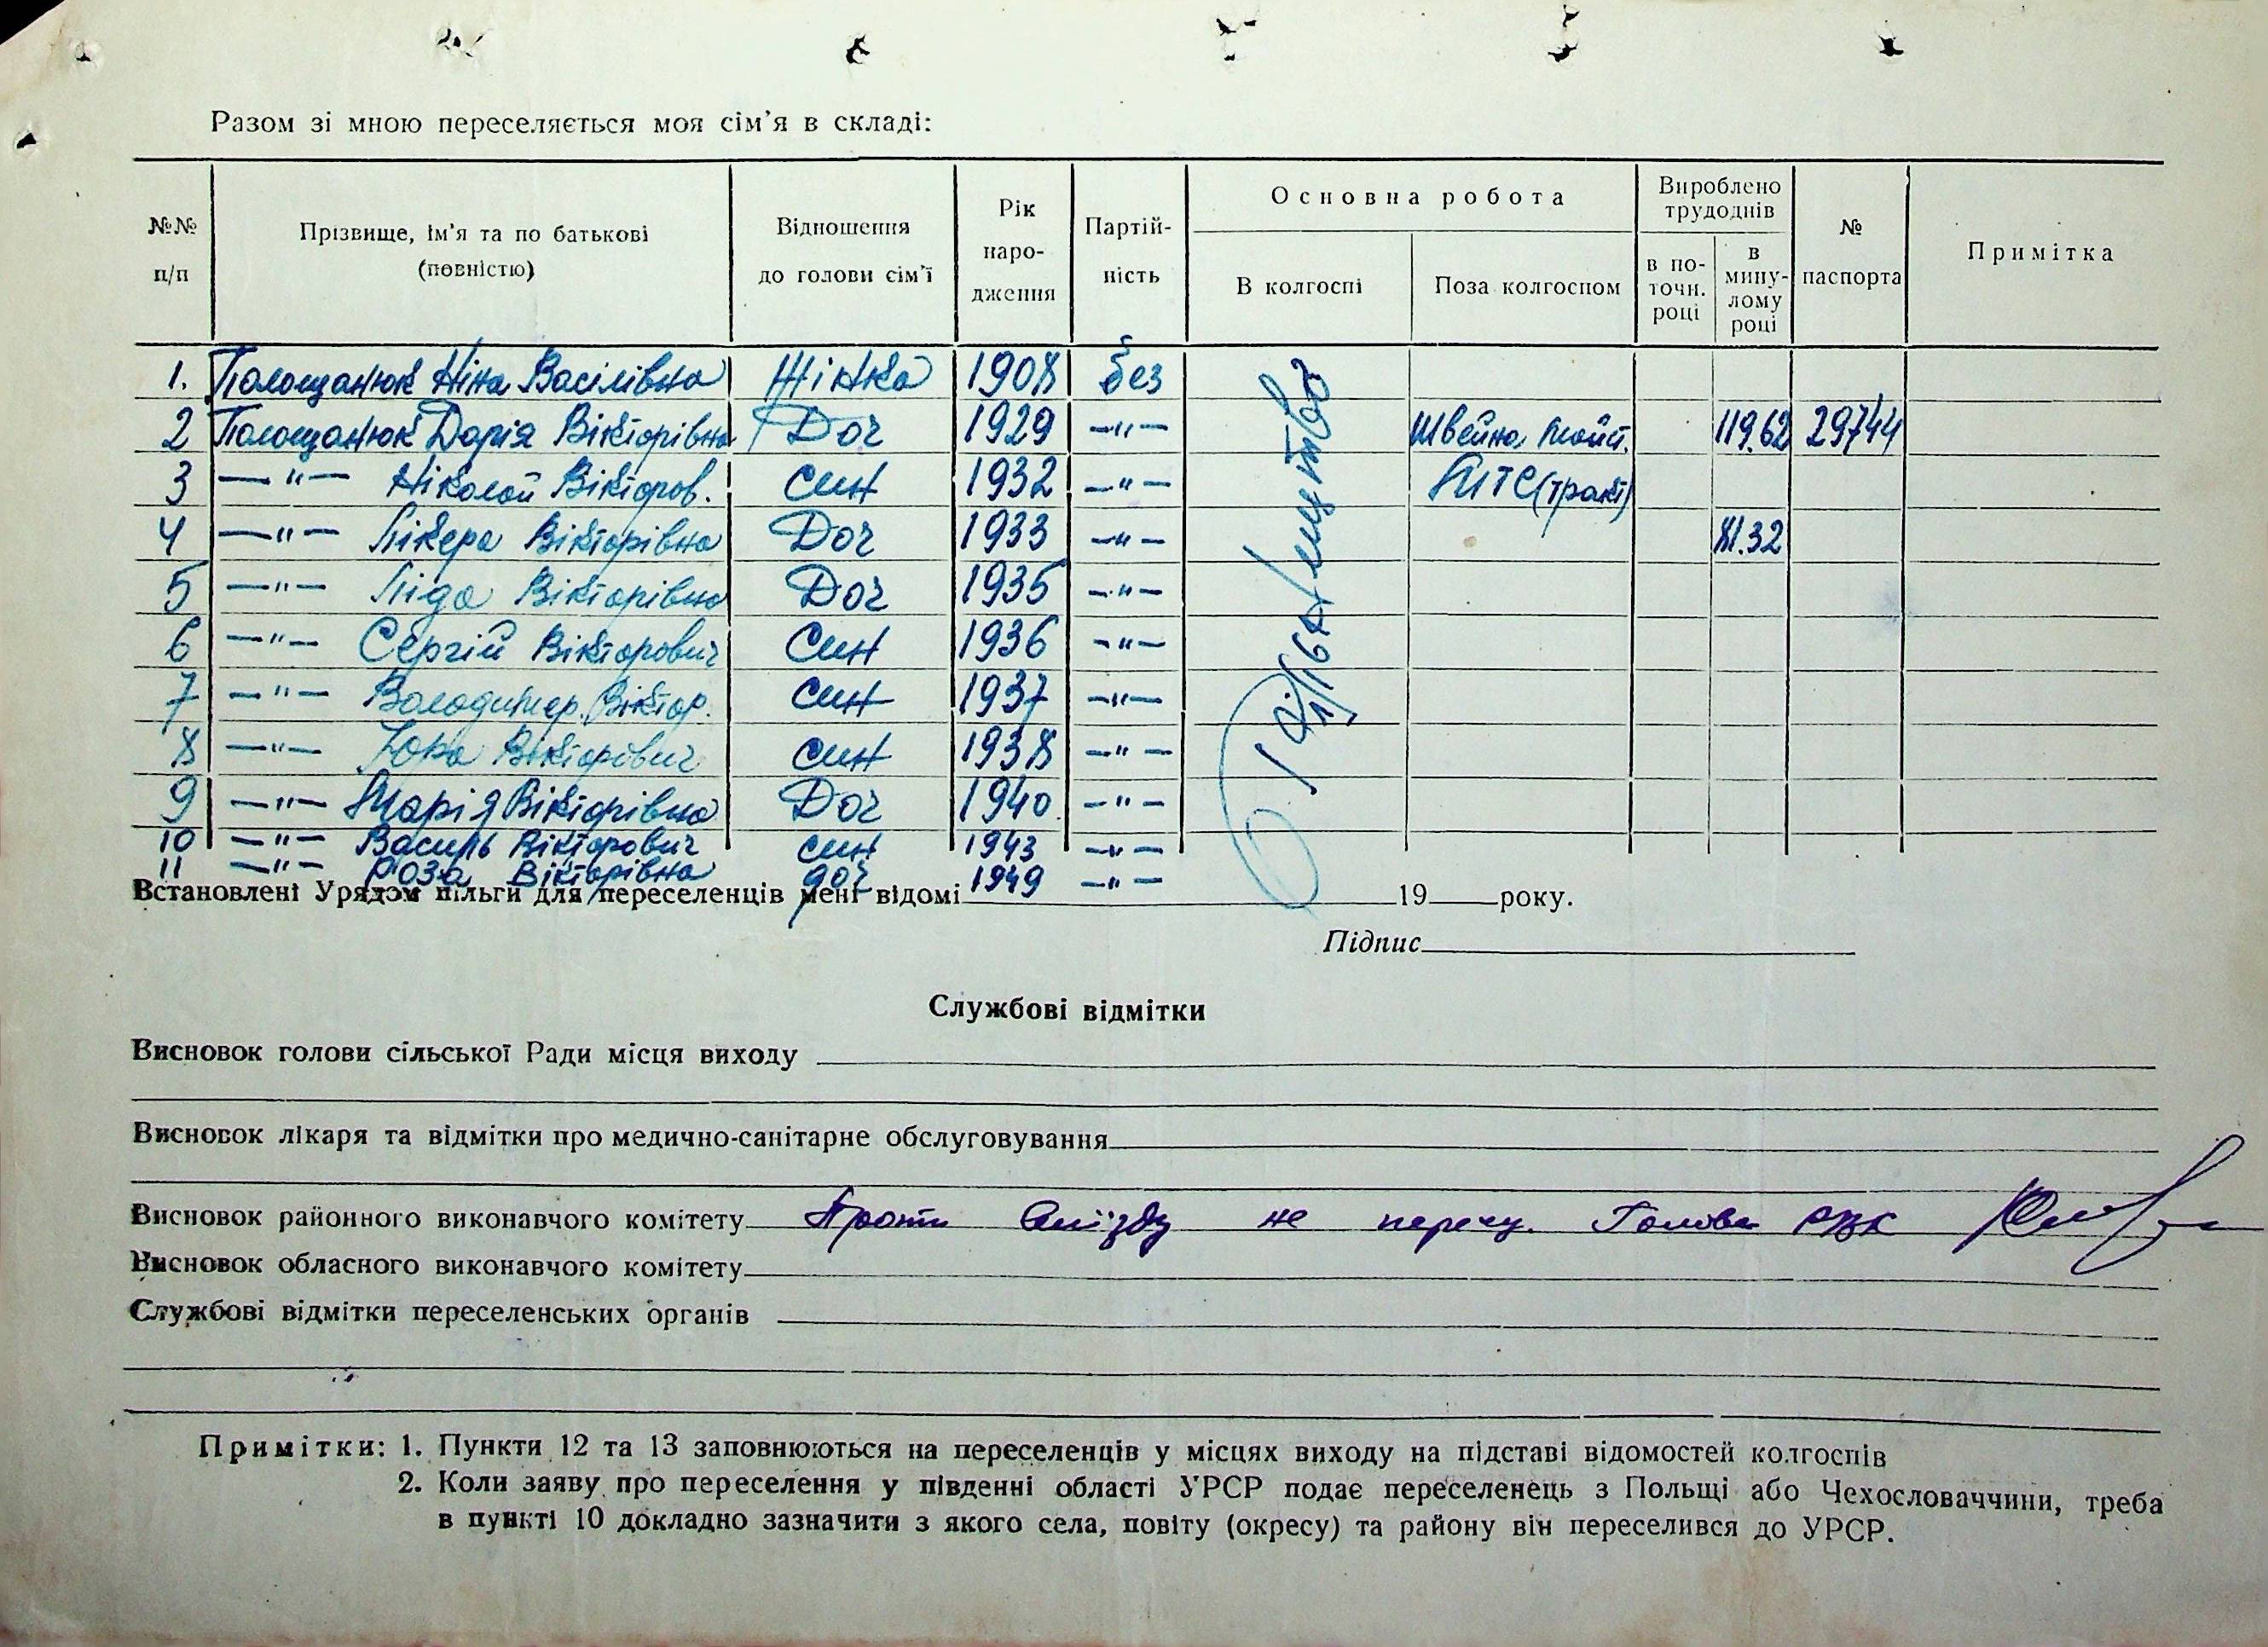 Разом зі мною переселяється моя сім'я в складі:
№№ п/п
Прізвище, ім'я та по батькові (повністю)
Відношення до голови сім'ї
Рік народження
Партійність
Основна робота
В колгоспі
Поза колгоспом
Вироблено трудоднів
в поточн. році
в минулому році
№ паспорта
Примітка
1. Полощанюк Ніна Васілівна Жінка 1908 без
2 Полощанюк Дарія Вікторівна Доч 1929 —"— Швейна майст. 119.62 29744
3 —"— Ніколай Вікторов. син 1932 —"— МТС (тракт)
4 —"— Лікера Вікторівна Доч 1933 —"— 81.32
5 —"— Ліда Вікторівна Доч 1935 —"—
6 —"— Сергій Вікторович Син 1936 —"—
7 —"— Володимер Віктор. син 1937 —"—
8 —"— Юра Вікторович син 1938 —"—
9 —"— Марія Вікторівна Доч 1940 —"—
10 —"— Василь Вікторович син 1943 —"—
11 —"— Роза Вікторівна доч 1949 —"—
Встановлені Урядом пільги для переселенців мені відомі 19 року.
Підпис
Службові відмітки
Висновок голови сільської Ради місця виходу
Висновок лікаря та відмітки про медично-санітарне обслуговування
Висновок районного виконавчого комітету Проти виїзду не перечу. Голова РВК
Висновок обласного виконавчого комітету
Службові відмітки переселенських органів
Примітки: 1. Пункти 12 та 13 заповнюються на переселенців у місцях виходу на підставі відомостей колгоспів
2. Коли заяву про переселення у південні області УРСР подає переселенець з Польщі або Чехословаччини, треба
в пункті 10 докладно зазначити з якого села, повіту (окресу) та району він переселився до УРСР.